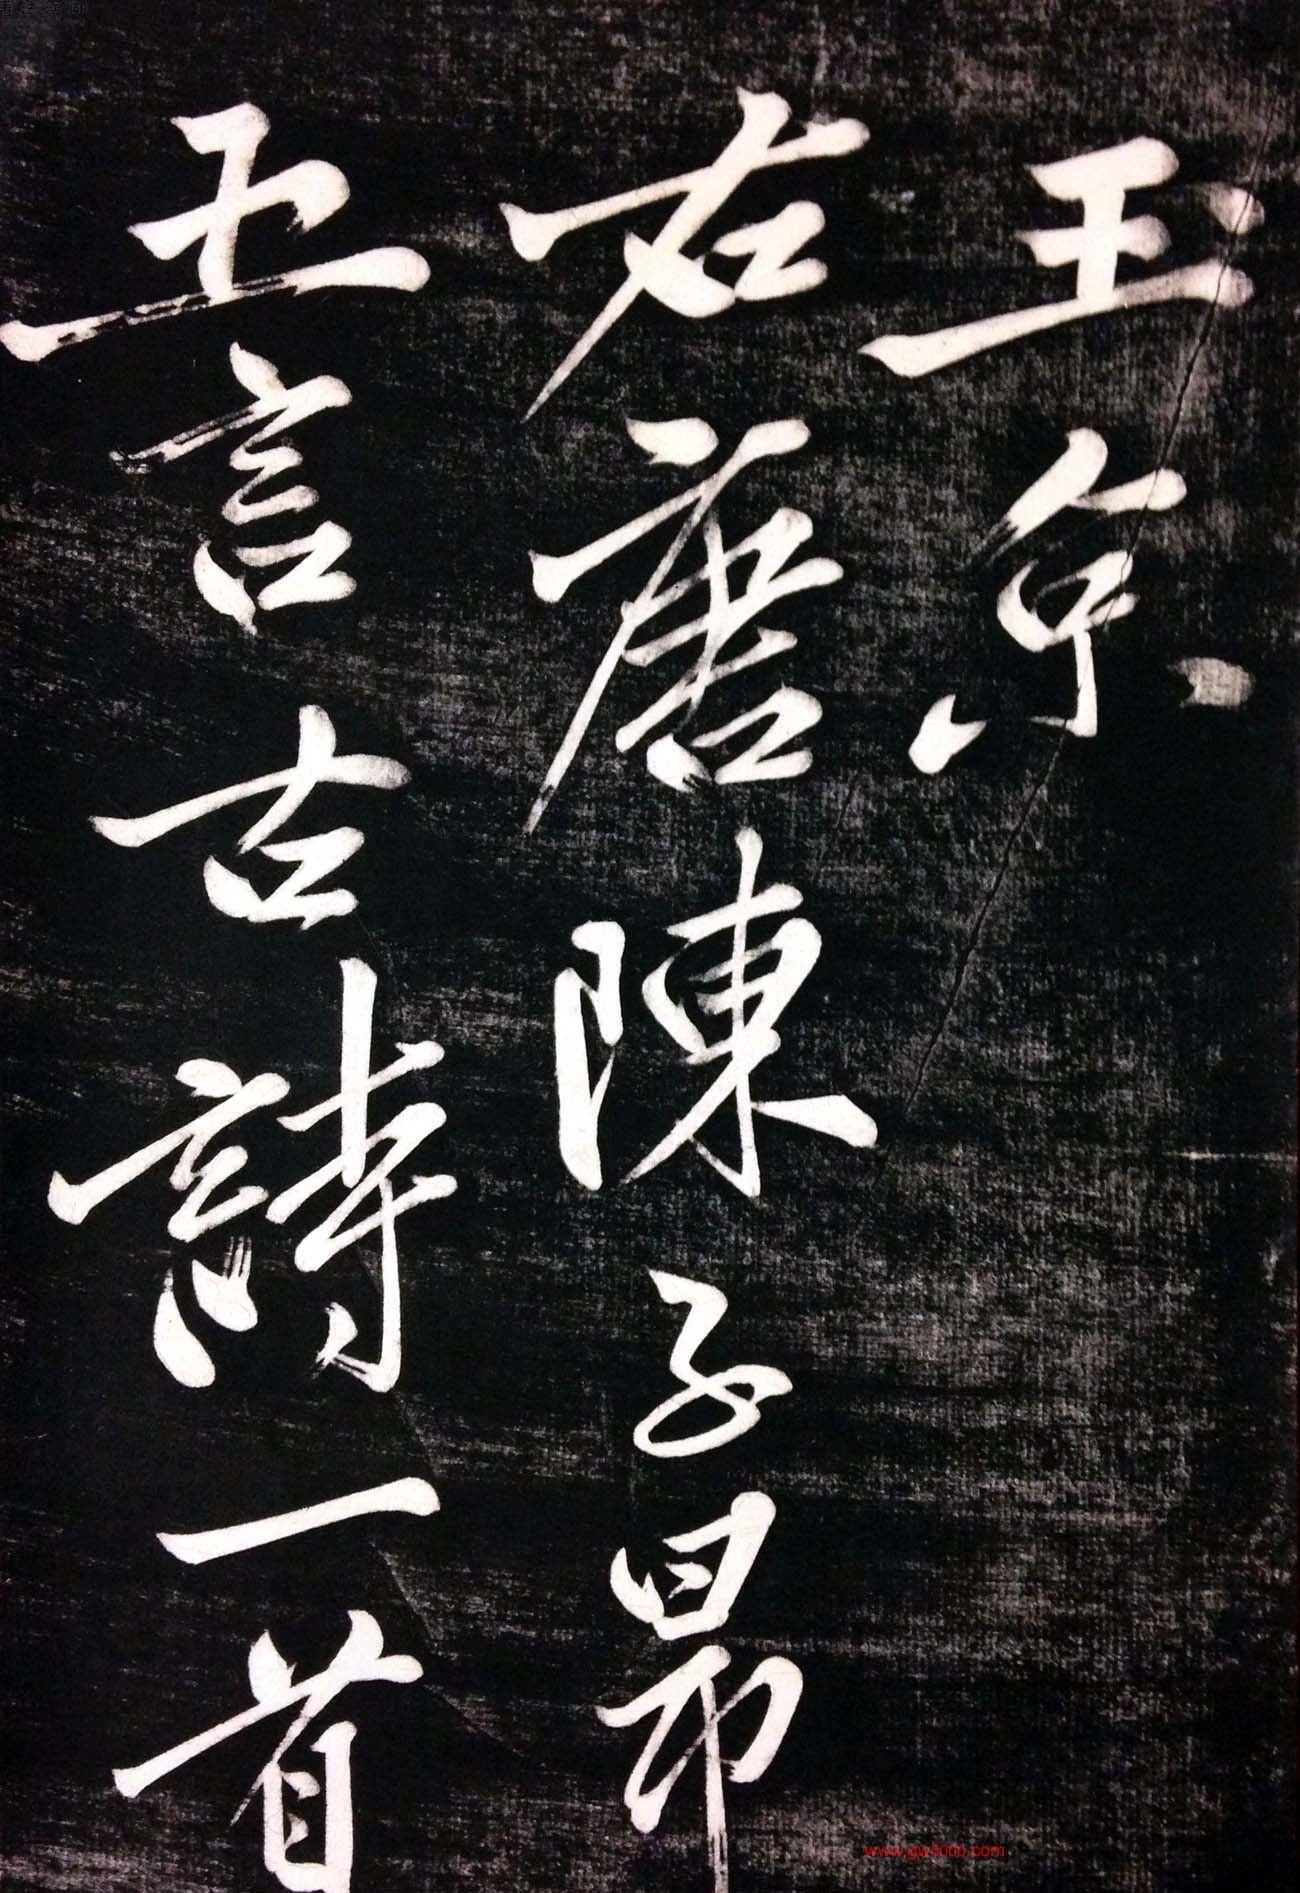 玉京
右唐陳子昂
五言古詩一首
www.gw5000.com